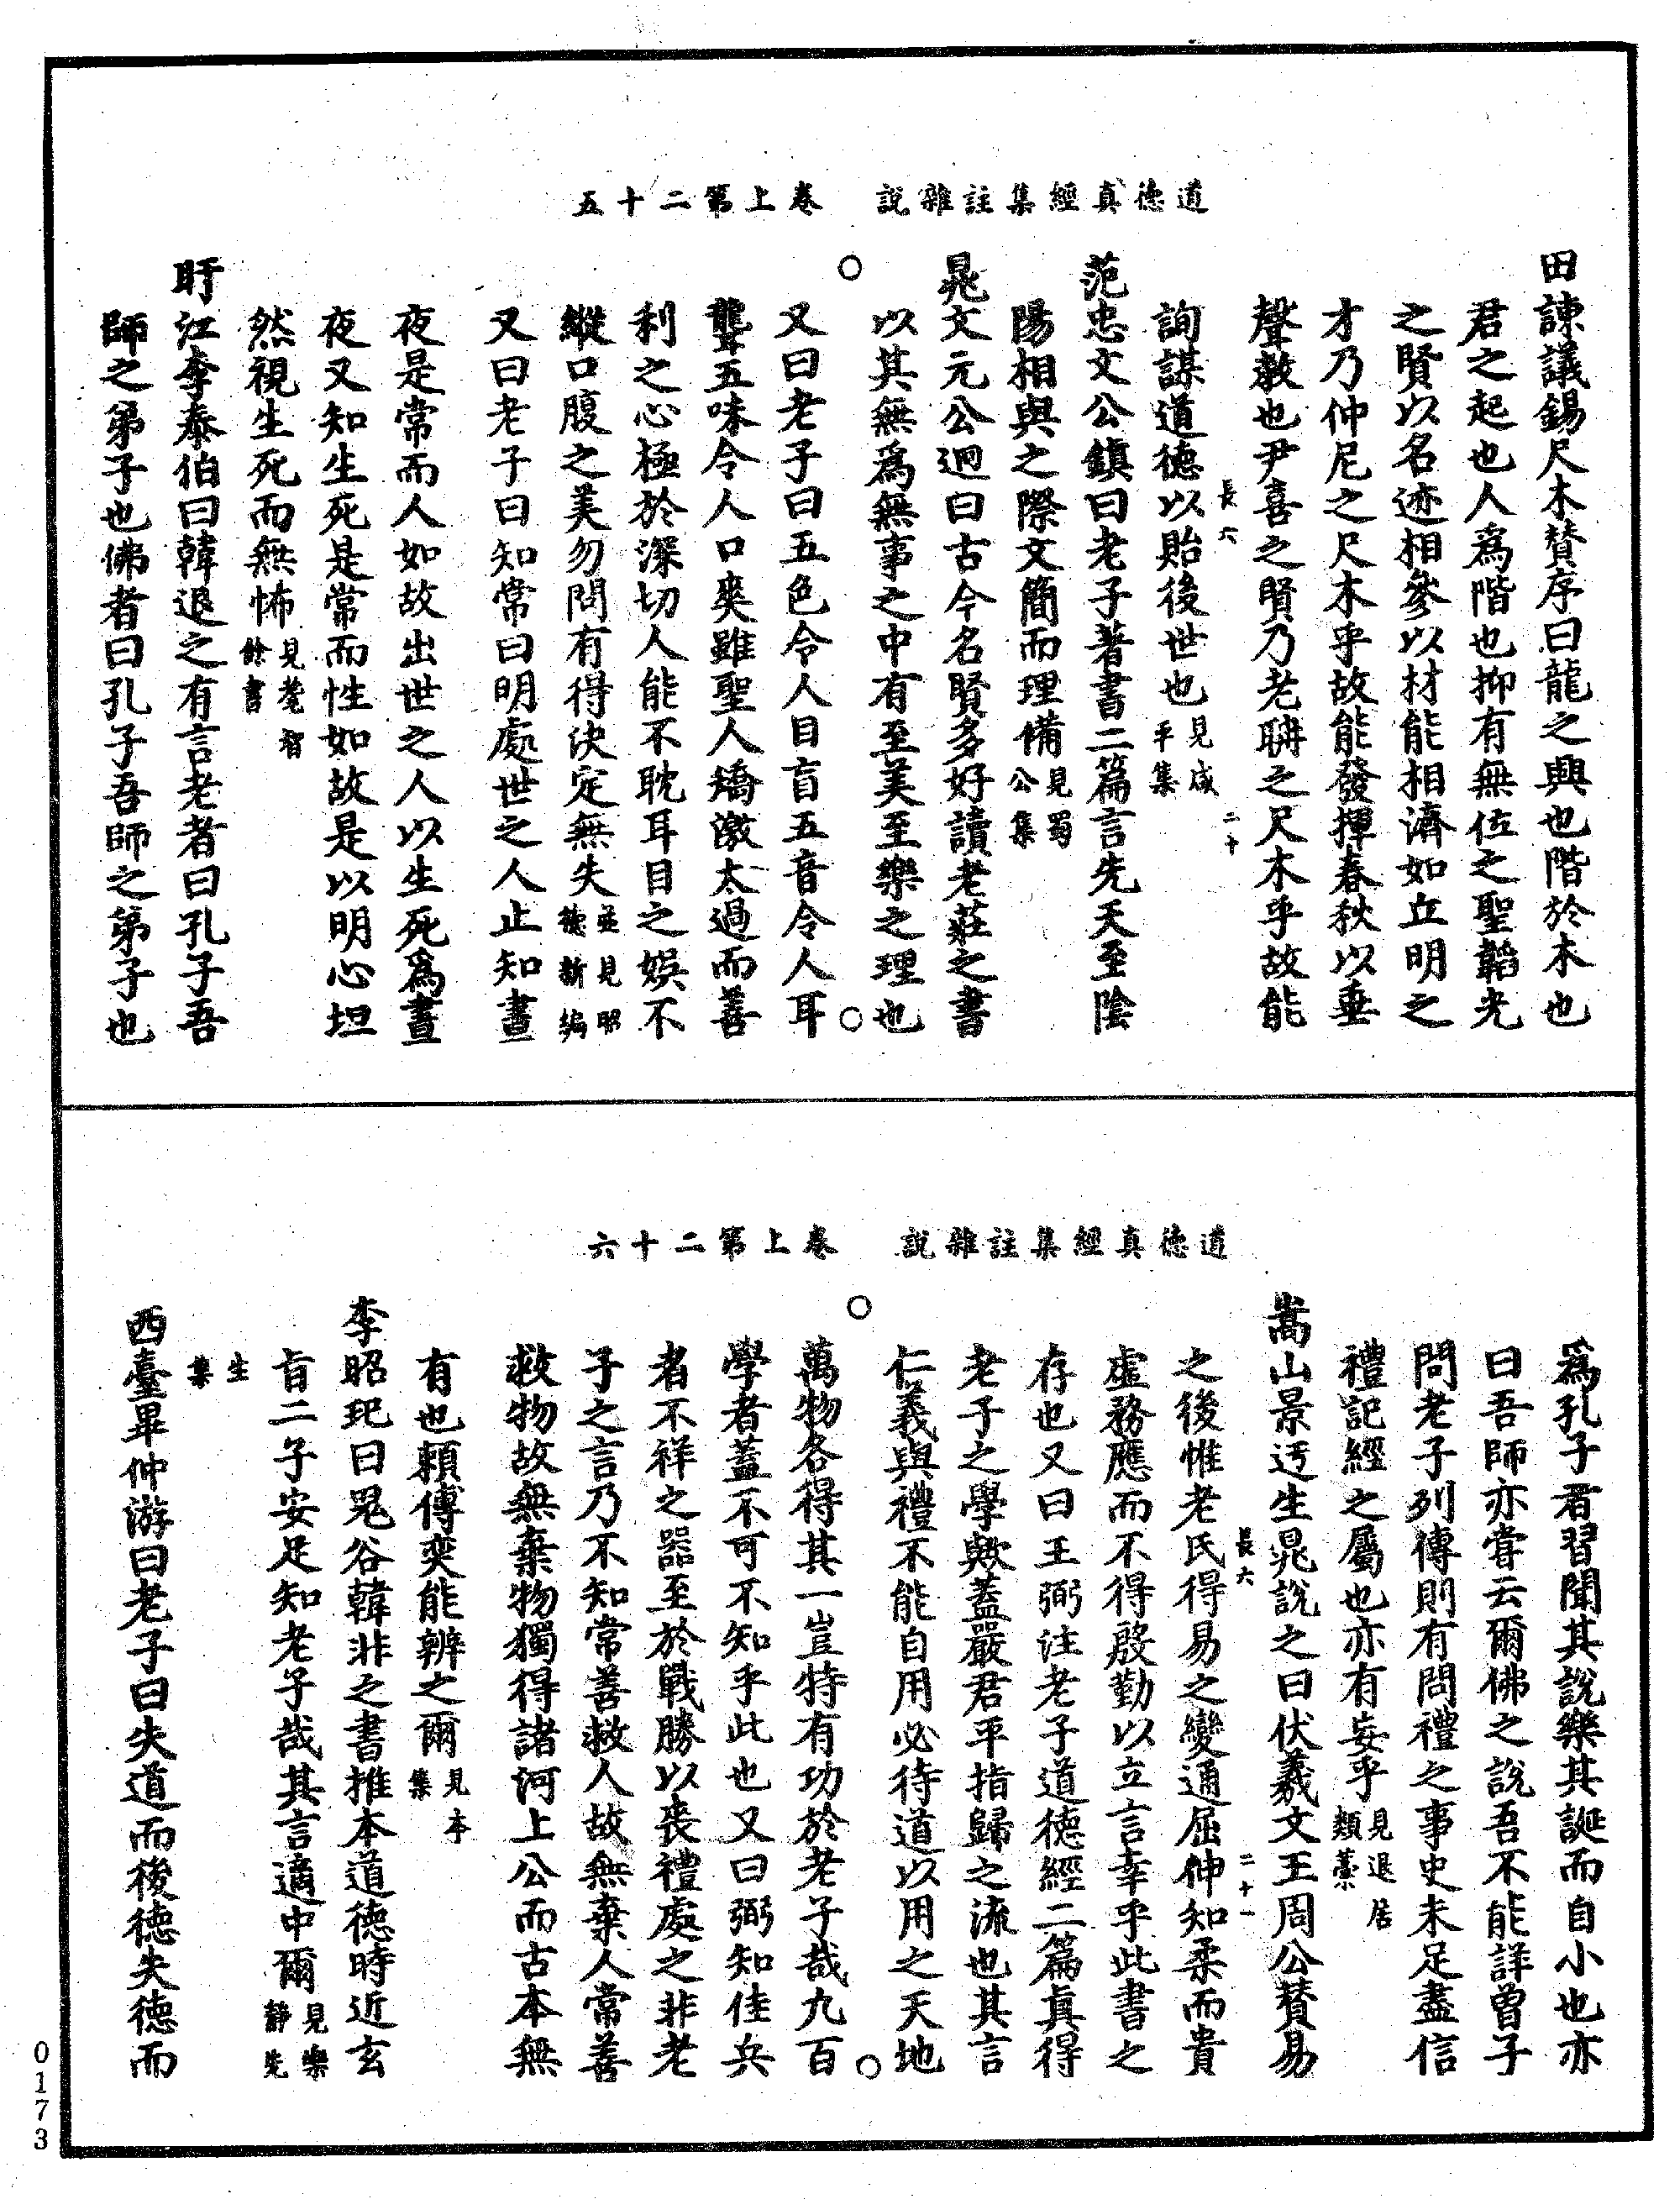 道德真經集註雜說　卷上第二十五
田諫議錫尺木賛序曰龍之興也階於木也
君之起也人爲階也抑有無佐之聖韜光
之賢以名迹相參以材能相濟如丘明之
才乃仲尼之尺木乎故能發揮春秋以垂
聲教也尹喜之賢乃老聃之尺木乎故能
長六　二十
詢謀道德以貽後世也見咸平集
范忠文公鎮曰老子著書二篇言先天至陰
陽相與之際文簡而理備見蜀公集
晁文元公迥曰古今名賢多好讀老莊之書
以其無爲無事之中有至美至樂之理也
又曰老子曰五色令人目盲五音令人耳
聾五味令人口爽雖聖人矯激太過而善
利之心極於深切人能不耽耳目之娛不
縱口腹之美勿問有得決定無失並見昭德新編
又曰老子曰知常曰明處世之人止知晝
夜是常而人如故出世之人以生死爲晝
夜又知生死是常而性如故是以明心坦
然視生死而無怖見耄智餘書
盱江李泰伯曰韓退之有言老者曰孔子吾
師之弟子也佛者曰孔子吾師之弟子也
道德真經集註雜說　卷上第二十六
爲孔子者習聞其說樂其誕而自小也亦
曰吾師亦嘗云爾佛之說吾不能詳曾子
問老子列傳則有問禮之事史未足盡信
禮記經之屬也亦有妄乎見退居類藁
嵩山景迂生晁說之曰伏羲文王周公賛易
長六　二十一
之後惟老氏得易之變通屈伸知柔而貴
虛務應而不得殷勤以立言幸乎此書之
存也又曰王弼注老子道德經二篇真得
老子之學歟蓋嚴君平指歸之流也其言
仁義與禮不能自用必待道以用之天地
萬物各得其一豈特有功於老子哉九百
學者蓋不可不知乎此也又曰弼知佳兵
者不祥之器至於戰勝以喪禮處之非老
子之言乃不知常善救人故無棄人常善
救物故無棄物獨得諸河上公而古本無
有也賴傅奕能辨之爾見本集
李昭玘曰鬼谷韓非之書推本道德時近玄
旨二子安足知老子哉其言適中爾見樂靜先
生集
西臺畢仲游曰老子曰失道而後德失德而
0173